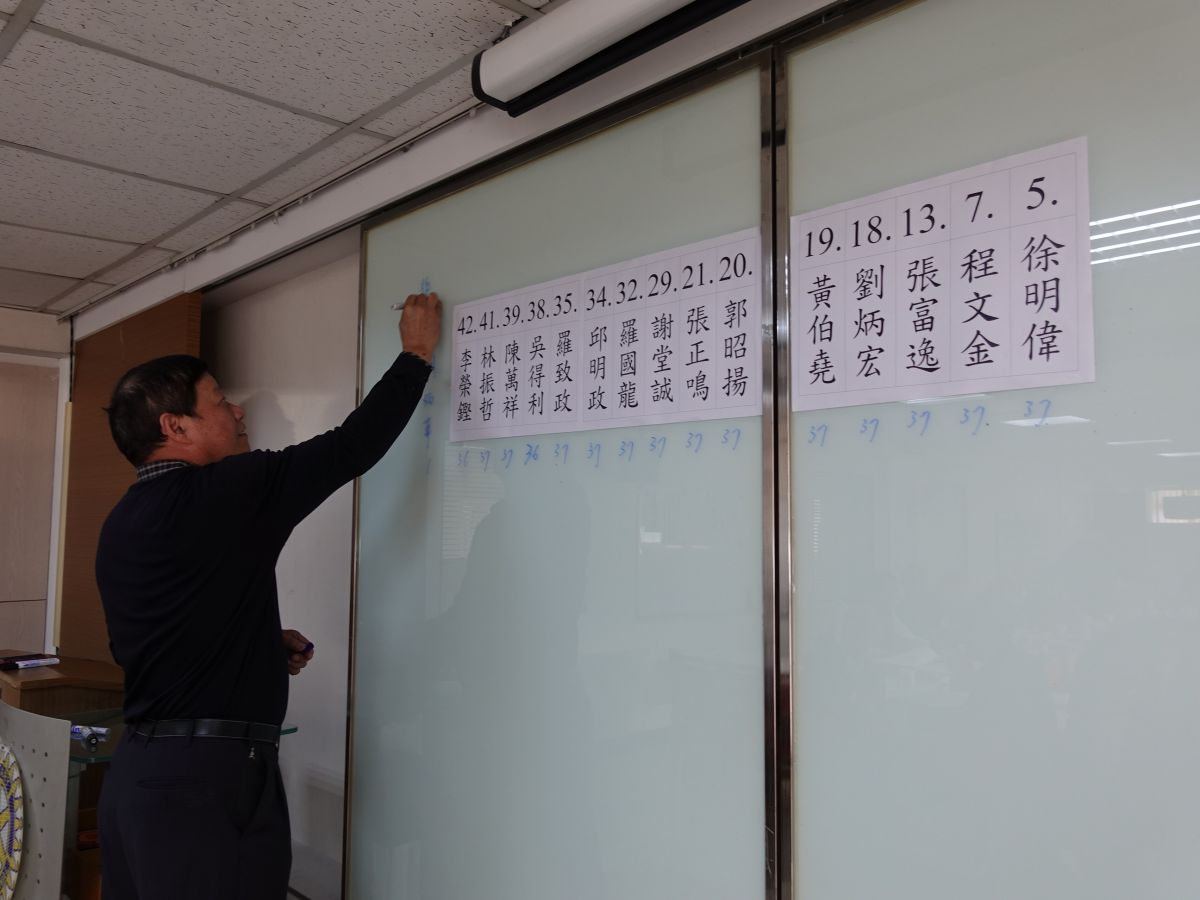 5. 徐明偉 37
7. 程文金 37
13. 張富逸 37
18. 劉炳宏 37
19. 黃伯堯 37
20. 郭昭揚 37
21. 張正鳴 37
29. 謝堂誠 37
32. 羅國龍 37
34. 邱明政 37
35. 羅致政 37
38. 吳得利 36
39. 陳萬祥 37
41. 林振哲 37
42. 李榮鏗 36